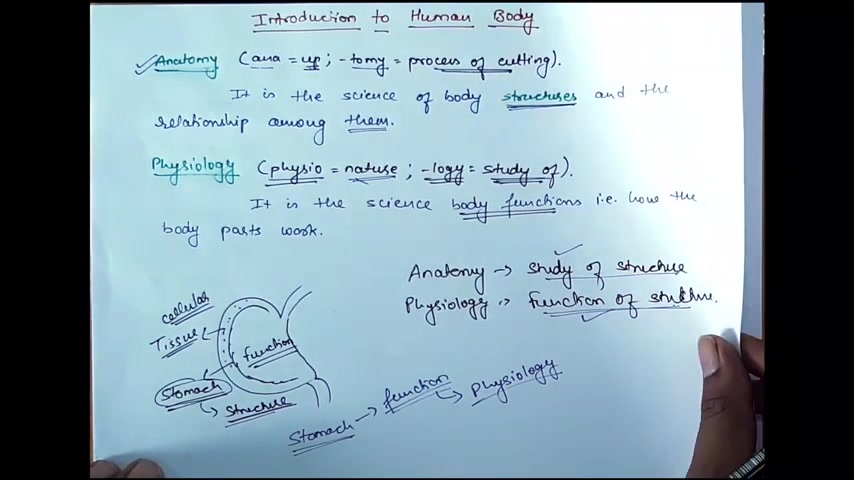 Introduction to Human Body
Anatomy (ana = up ; -tomy = process of cutting).
It is the science of body structures and the
relationship among them.
Physiology (physio = nature ; -logy = study of).
It is the science body functions i.e. how the
body parts work.
Anatomy → study of structure
Physiology → function of structure.
cellular
Tissue
function
Stomach
structure
Stomach → function
physiology